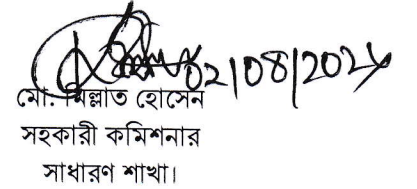 02/08/202
মো. মিল্লাত হোসেন
সহকারী কমিশনার
সাধারণ শাখা।